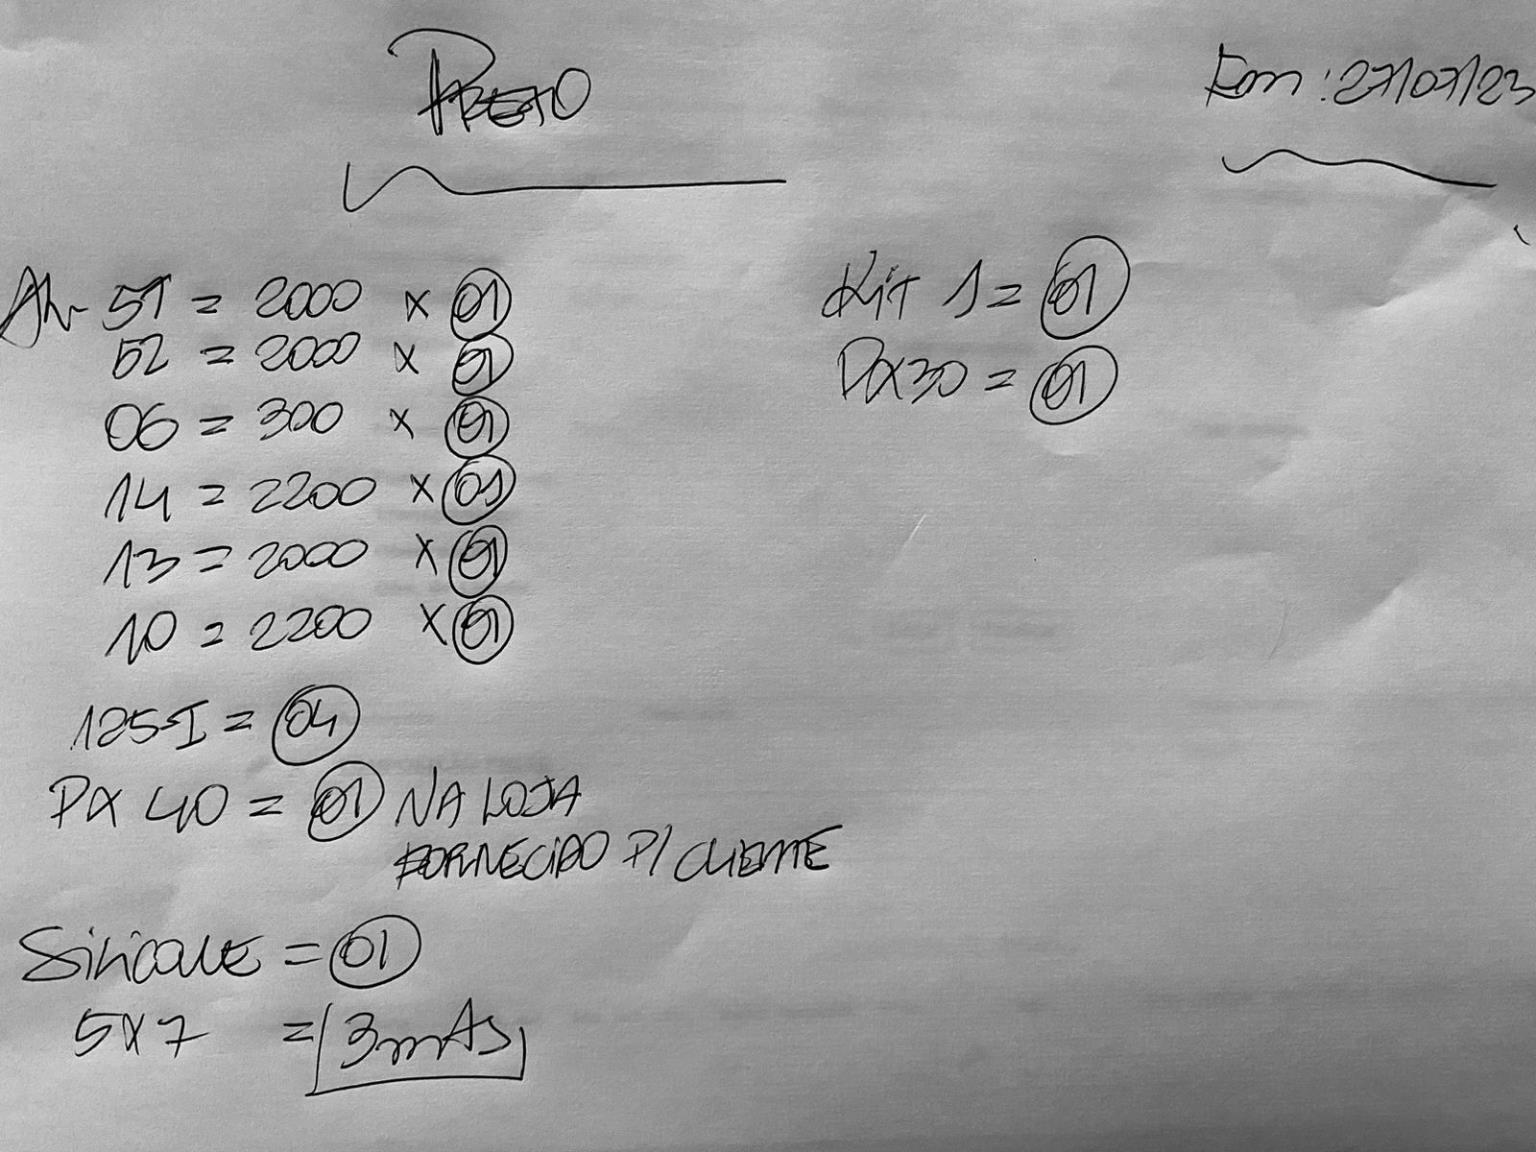 PRETO
Em: 27/07/23
AL 51 = 2000 x 01
52 = 2000 x 01
06 = 300 x 01
14 = 2200 x 01
13 = 2000 x 01
10 = 2200 x 01
125-I = 04
PX 40 = 01 NA LOJA
FORNECIDO P/ CLIENTE
Kit 1 = 01
PX30 = 01
SiliCONE = 01
5x7 = 3mts